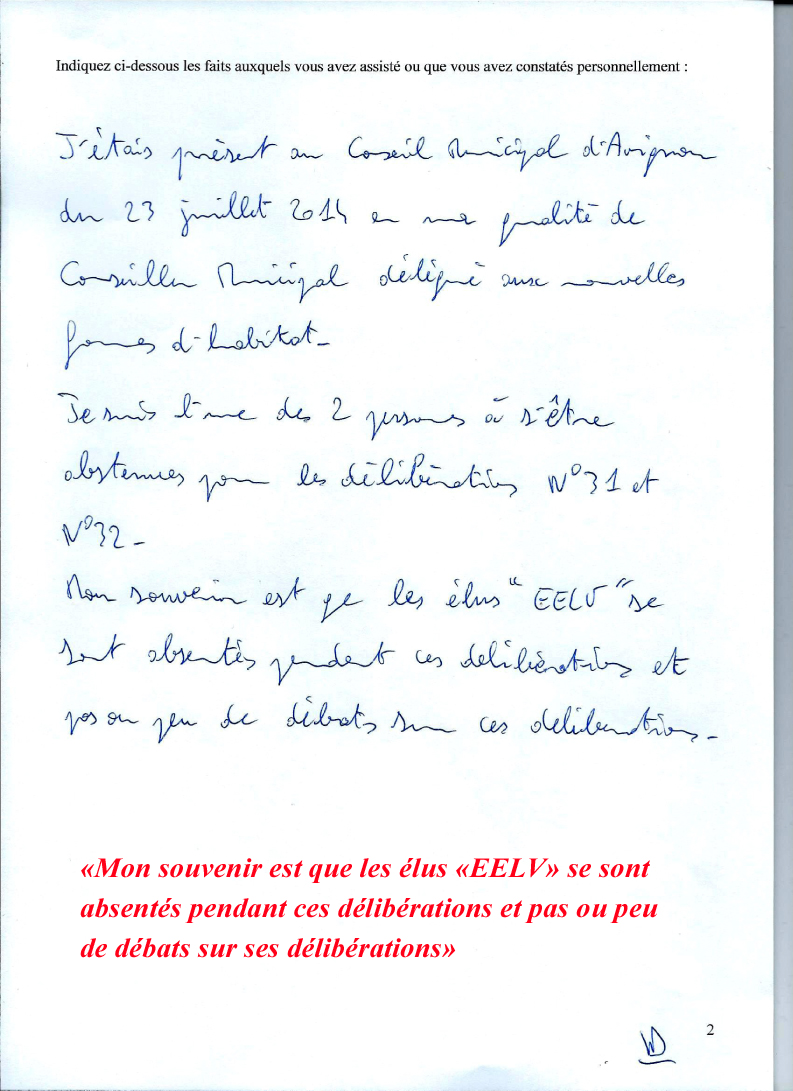 Indiquez ci-dessous les faits auxquels vous avez assisté ou que vous avez constatés personnellement :
J'étais présent au Conseil Municipal d'Avignon
du 23 juillet 2014 en ma qualité de
Conseiller Municipal délégué aux nouvelles
formes d'habitat-
Je suis l'une des 2 personnes à s'être
abstenues pour les délibérations N°31 et
N°32-
Mon souvenir est que les élus "EELV" se
sont absentés pendant ces délibérations et
pas ou peu de débats sur ces délibérations-
«Mon souvenir est que les élus «EELV» se sont
absentés pendant ces délibérations et pas ou peu
de débats sur ses délibérations»
2